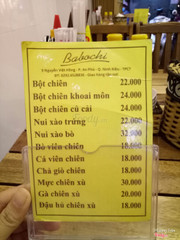 Babochi
Bột chiên 22.000
Bột chiên khoai môn 24.000
Bột chiên củ cải 24.000
Nui xào trứng 22.000
Nui xào bò 32.000
Bò viên chiên 18.000
Cá viên chiên 18.000
Chả giò chiên 18.000
Mực chiên xù 30.000
Gà chiên xù 20.000
Đậu hủ chiên xù 18.000